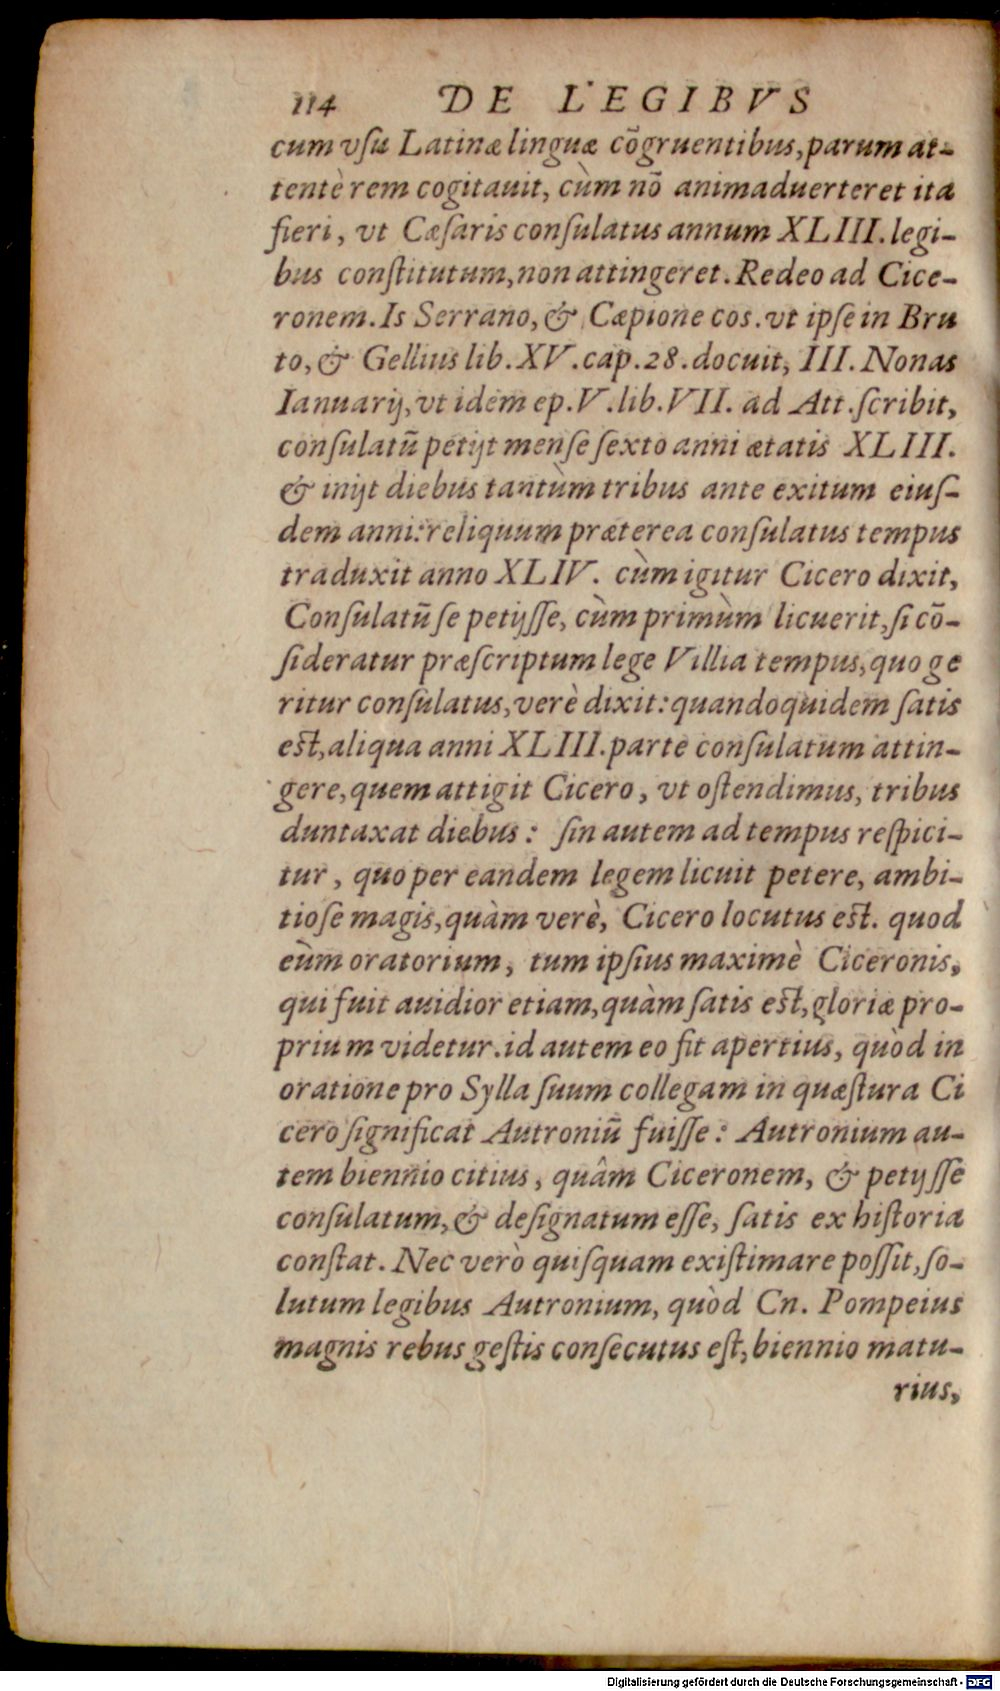 114 DE LEGIBVS
cum vſu Latinæ linguæ cõgruentibus, parum at-
tentè rem cogitauit, cùm nõ animaduerteret ita
fieri, vt Cæſaris conſulatus annum XLIII. legi-
bus conſtitutum, non attingeret. Redeo ad Cice-
ronem. Is Serrano, & Cæpione cos. vt ipſe in Bru
to, & Gellius lib. XV. cap. 28. docuit, III. Nonas
Ianuarij, vt idem ep. V. lib. VII. ad Att. ſcribit,
conſulatũ petijt menſe ſexto anni ætatis XLIII.
& inijt diebus tantùm tribus ante exitum eiuſ-
dem anni: reliquum præterea conſulatus tempus
traduxit anno XLIV. cùm igitur Cicero dixit,
Conſulatũ ſe petijſſe, cùm primùm licuerit, ſi cõ-
ſideratur præſcriptum lege Villia tempus, quo ge
ritur conſulatus, verè dixit: quandoquidem ſatis
eſt, aliqua anni XLIII. parte conſulatum attin-
gere, quem attigit Cicero, vt oſtendimus, tribus
duntaxat diebus: ſin autem ad tempus reſpici-
tur, quo per eandem legem licuit petere, ambi-
tioſe magis, quàm verè, Cicero locutus eſt. quod
eùm oratorium, tum ipſius maximè Ciceronis,
qui fuit auidior etiam, quàm ſatis eſt, gloriæ pro-
prium videtur. id autem eo fit apertius, quòd in
oratione pro Sylla ſuum collegam in quæſtura Ci
cero ſignificat Autroniũ fuiſſe: Autronium au-
tem biennio citius, quâm Ciceronem, & petijſſe
conſulatum, & deſignatum eſſe, ſatis ex hiſtoria
conſtat. Nec verò quiſquam exiſtimare poſſit, ſo-
lutum legibus Autronium, quòd Cn. Pompeius
magnis rebus geſtis conſecutus eſt, biennio matu-
rius,
Digitalisierung gefördert durch die Deutsche Forschungsgemeinschaft - DFG